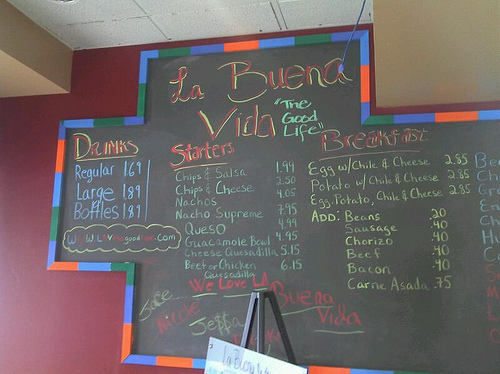 La Buena
Vida
"The
Good
Life"
Drinks
Regular 1.69
Large 1.89
Bottles 1.89
Starters
Chips & Salsa 1.99
Chips & Cheese 2.50
Nachos 4.05
Nacho Supreme 7.95
Queso 4.99
Guacamole Bowl 4.95
Cheese Quesadilla 5.15
Beef or Chicken 6.15
Quesadilla
Breakfast
Egg w/Chile & Cheese 2.85
Potato w/Chile & Cheese 2.85
Egg, Potato, Chile & Cheese 2.85
ADD: Beans .20
Sausage .40
Chorizo .40
Beef .40
Bacon .40
Carne Asada .75
We Love LA
Buena
Vida
Nicole
Jeffa